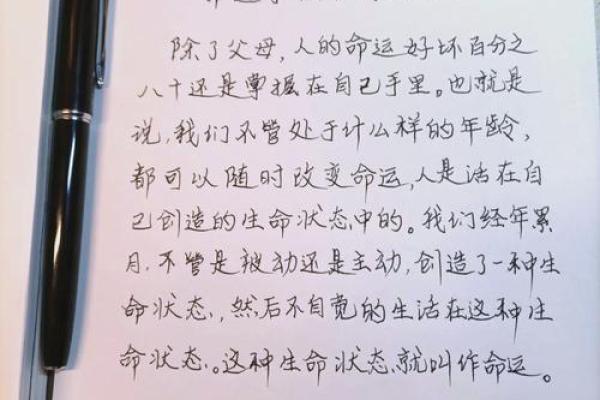 除了父母，人的命运好坏百分之
八十还是掌握在自己手里。也就是
说，我们不管处于什么样的年龄，
都可以随时改变命运，人是活在自
己创造的生命状态中的。我们经年累
月，不管是被动还是主动，创造了一种生
命状态，然后不自觉的生活在这种生
命状态。这种生命状态就叫作命运。